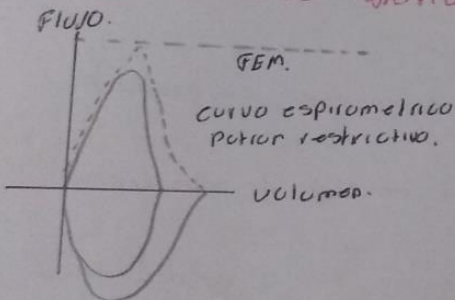 FLUJO.
FEM.
curva espirometrica
Patron restrictivo.
volumen.